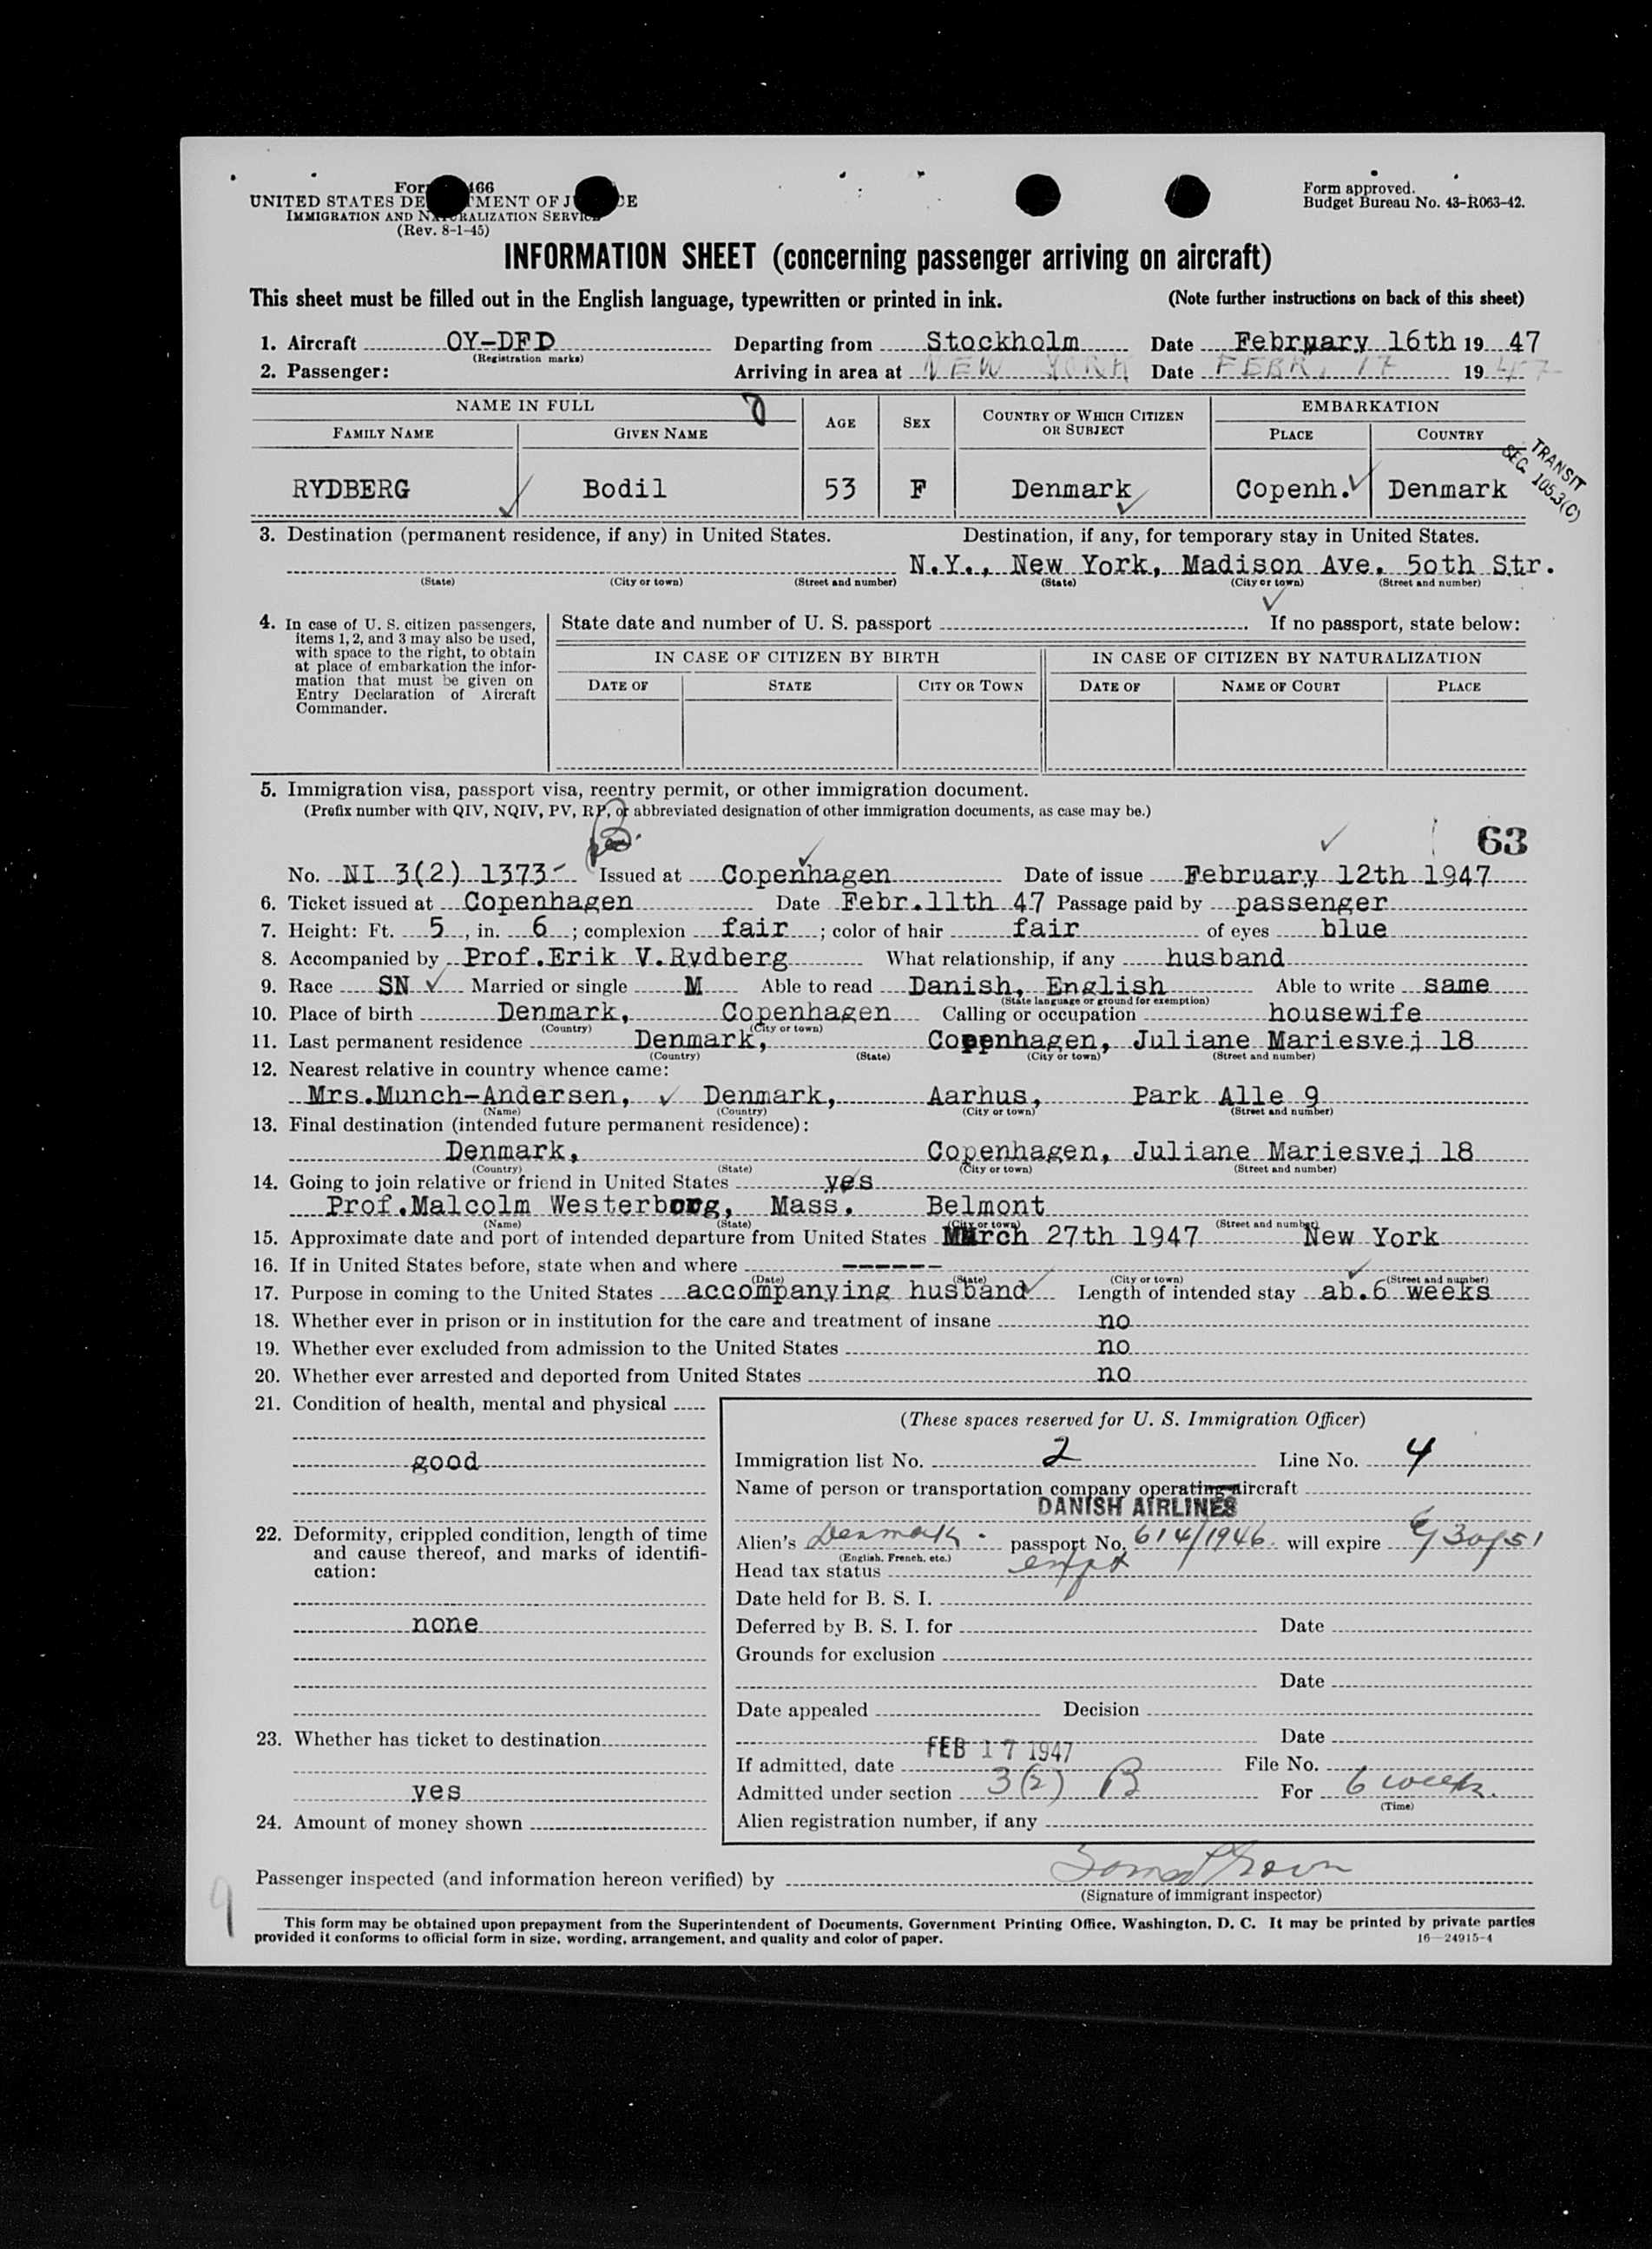 Form 466
UNITED STATES DEPARTMENT OF JUSTICE
IMMIGRATION AND NATURALIZATION SERVICE
(Rev. 8-1-45)
Form approved.
Budget Bureau No. 43-R063-42.
INFORMATION SHEET (concerning passenger arriving on aircraft)
This sheet must be filled out in the English language, typewritten or printed in ink. (Note further instructions on back of this sheet)
1. Aircraft OY-DFD Departing from Stockholm Date February 16th 19 47
(Registration marks)
2. Passenger: Arriving in area at NEW YORK Date FEBR. 17 19 47
NAME IN FULL AGE SEX COUNTRY OF WHICH CITIZEN OR SUBJECT EMBARKATION
FAMILY NAME GIVEN NAME PLACE COUNTRY
RYDBERG Bodil 53 F Denmark Copenh. Denmark
TRANSIT
SEC. 105.3(C)
3. Destination (permanent residence, if any) in United States. Destination, if any, for temporary stay in United States.
N.Y., New York, Madison Ave. 5oth Str.
(State) (City or town) (Street and number) (State) (City or town) (Street and number)
4. In case of U. S. citizen passengers, items 1, 2, and 3 may also be used, with space to the right, to obtain at place of embarkation the information that must be given on Entry Declaration of Aircraft Commander.
State date and number of U. S. passport . If no passport, state below:
IN CASE OF CITIZEN BY BIRTH IN CASE OF CITIZEN BY NATURALIZATION
DATE OF STATE CITY OR TOWN DATE OF NAME OF COURT PLACE
5. Immigration visa, passport visa, reentry permit, or other immigration document.
(Prefix number with QIV, NQIV, PV, RP, or abbreviated designation of other immigration documents, as case may be.)
63
No. NI 3(2) 1373- Issued at Copenhagen Date of issue February 12th 1947
6. Ticket issued at Copenhagen Date Febr.11th 47 Passage paid by passenger
7. Height: Ft. 5, in. 6; complexion fair; color of hair fair of eyes blue
8. Accompanied by Prof.Erik V.Rydberg What relationship, if any husband
9. Race SN Married or single M Able to read Danish, English Able to write same
(State language or ground for exemption)
10. Place of birth Denmark, Copenhagen Calling or occupation housewife
(Country) (City or town)
11. Last permanent residence Denmark, Copenhagen, Juliane Mariesvej 18
(Country) (State) (City or town) (Street and number)
12. Nearest relative in country whence came:
Mrs.Munch-Andersen, Denmark, Aarhus, Park Alle 9
(Name) (Country) (City or town) (Street and number)
13. Final destination (intended future permanent residence):
Denmark, Copenhagen, Juliane Mariesvej 18
(Country) (State) (City or town) (Street and number)
14. Going to join relative or friend in United States yes
Prof.Malcolm Westerborg, Mass. Belmont
(Name) (State) (City or town) (Street and number)
15. Approximate date and port of intended departure from United States March 27th 1947 New York
16. If in United States before, state when and where ------
(Date) (State) (City or town) (Street and number)
17. Purpose in coming to the United States accompanying husband Length of intended stay ab.6 weeks
18. Whether ever in prison or in institution for the care and treatment of insane no
19. Whether ever excluded from admission to the United States no
20. Whether ever arrested and deported from United States no
21. Condition of health, mental and physical
good
22. Deformity, crippled condition, length of time and cause thereof, and marks of identification:
none
23. Whether has ticket to destination
yes
24. Amount of money shown
(These spaces reserved for U. S. Immigration Officer)
Immigration list No. 2 Line No. 4
Name of person or transportation company operating aircraft
DANISH AIRLINES
Alien's Denmark passport No. 614/1946 will expire 6/30/51
(English, French, etc.)
Head tax status
Date held for B. S. I.
Deferred by B. S. I. for Date
Grounds for exclusion
Date
Date appealed Decision
Date
If admitted, date FEB 17 1947 File No.
Admitted under section 3(2) B For 6 weeks.
(Time)
Alien registration number, if any
Passenger inspected (and information hereon verified) by
(Signature of immigrant inspector)
This form may be obtained upon prepayment from the Superintendent of Documents, Government Printing Office, Washington, D. C. It may be printed by private parties
provided it conforms to official form in size, wording, arrangement, and quality and color of paper. 16—24915-4
9